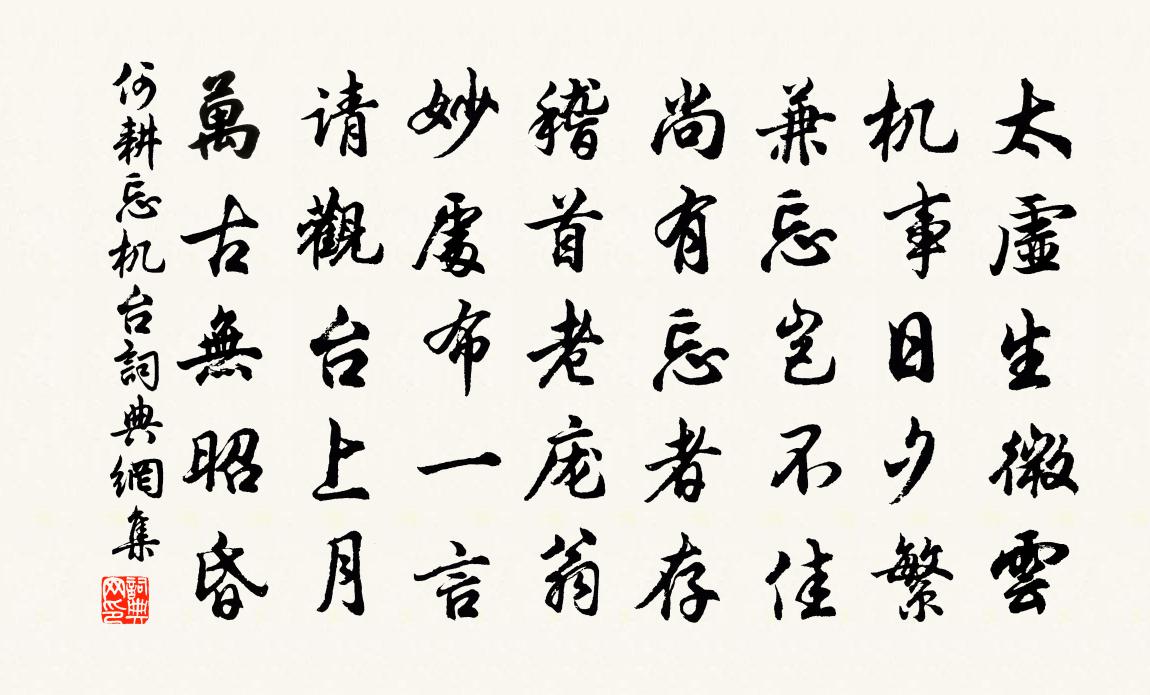 太虛生微雲
机事日夕繁
兼忘岂不佳
尚有忘者存
稽首老庞翁
妙處布一言
请觀台上月
萬古無昭昏
何耕忘机台詞典網集
詞典网印